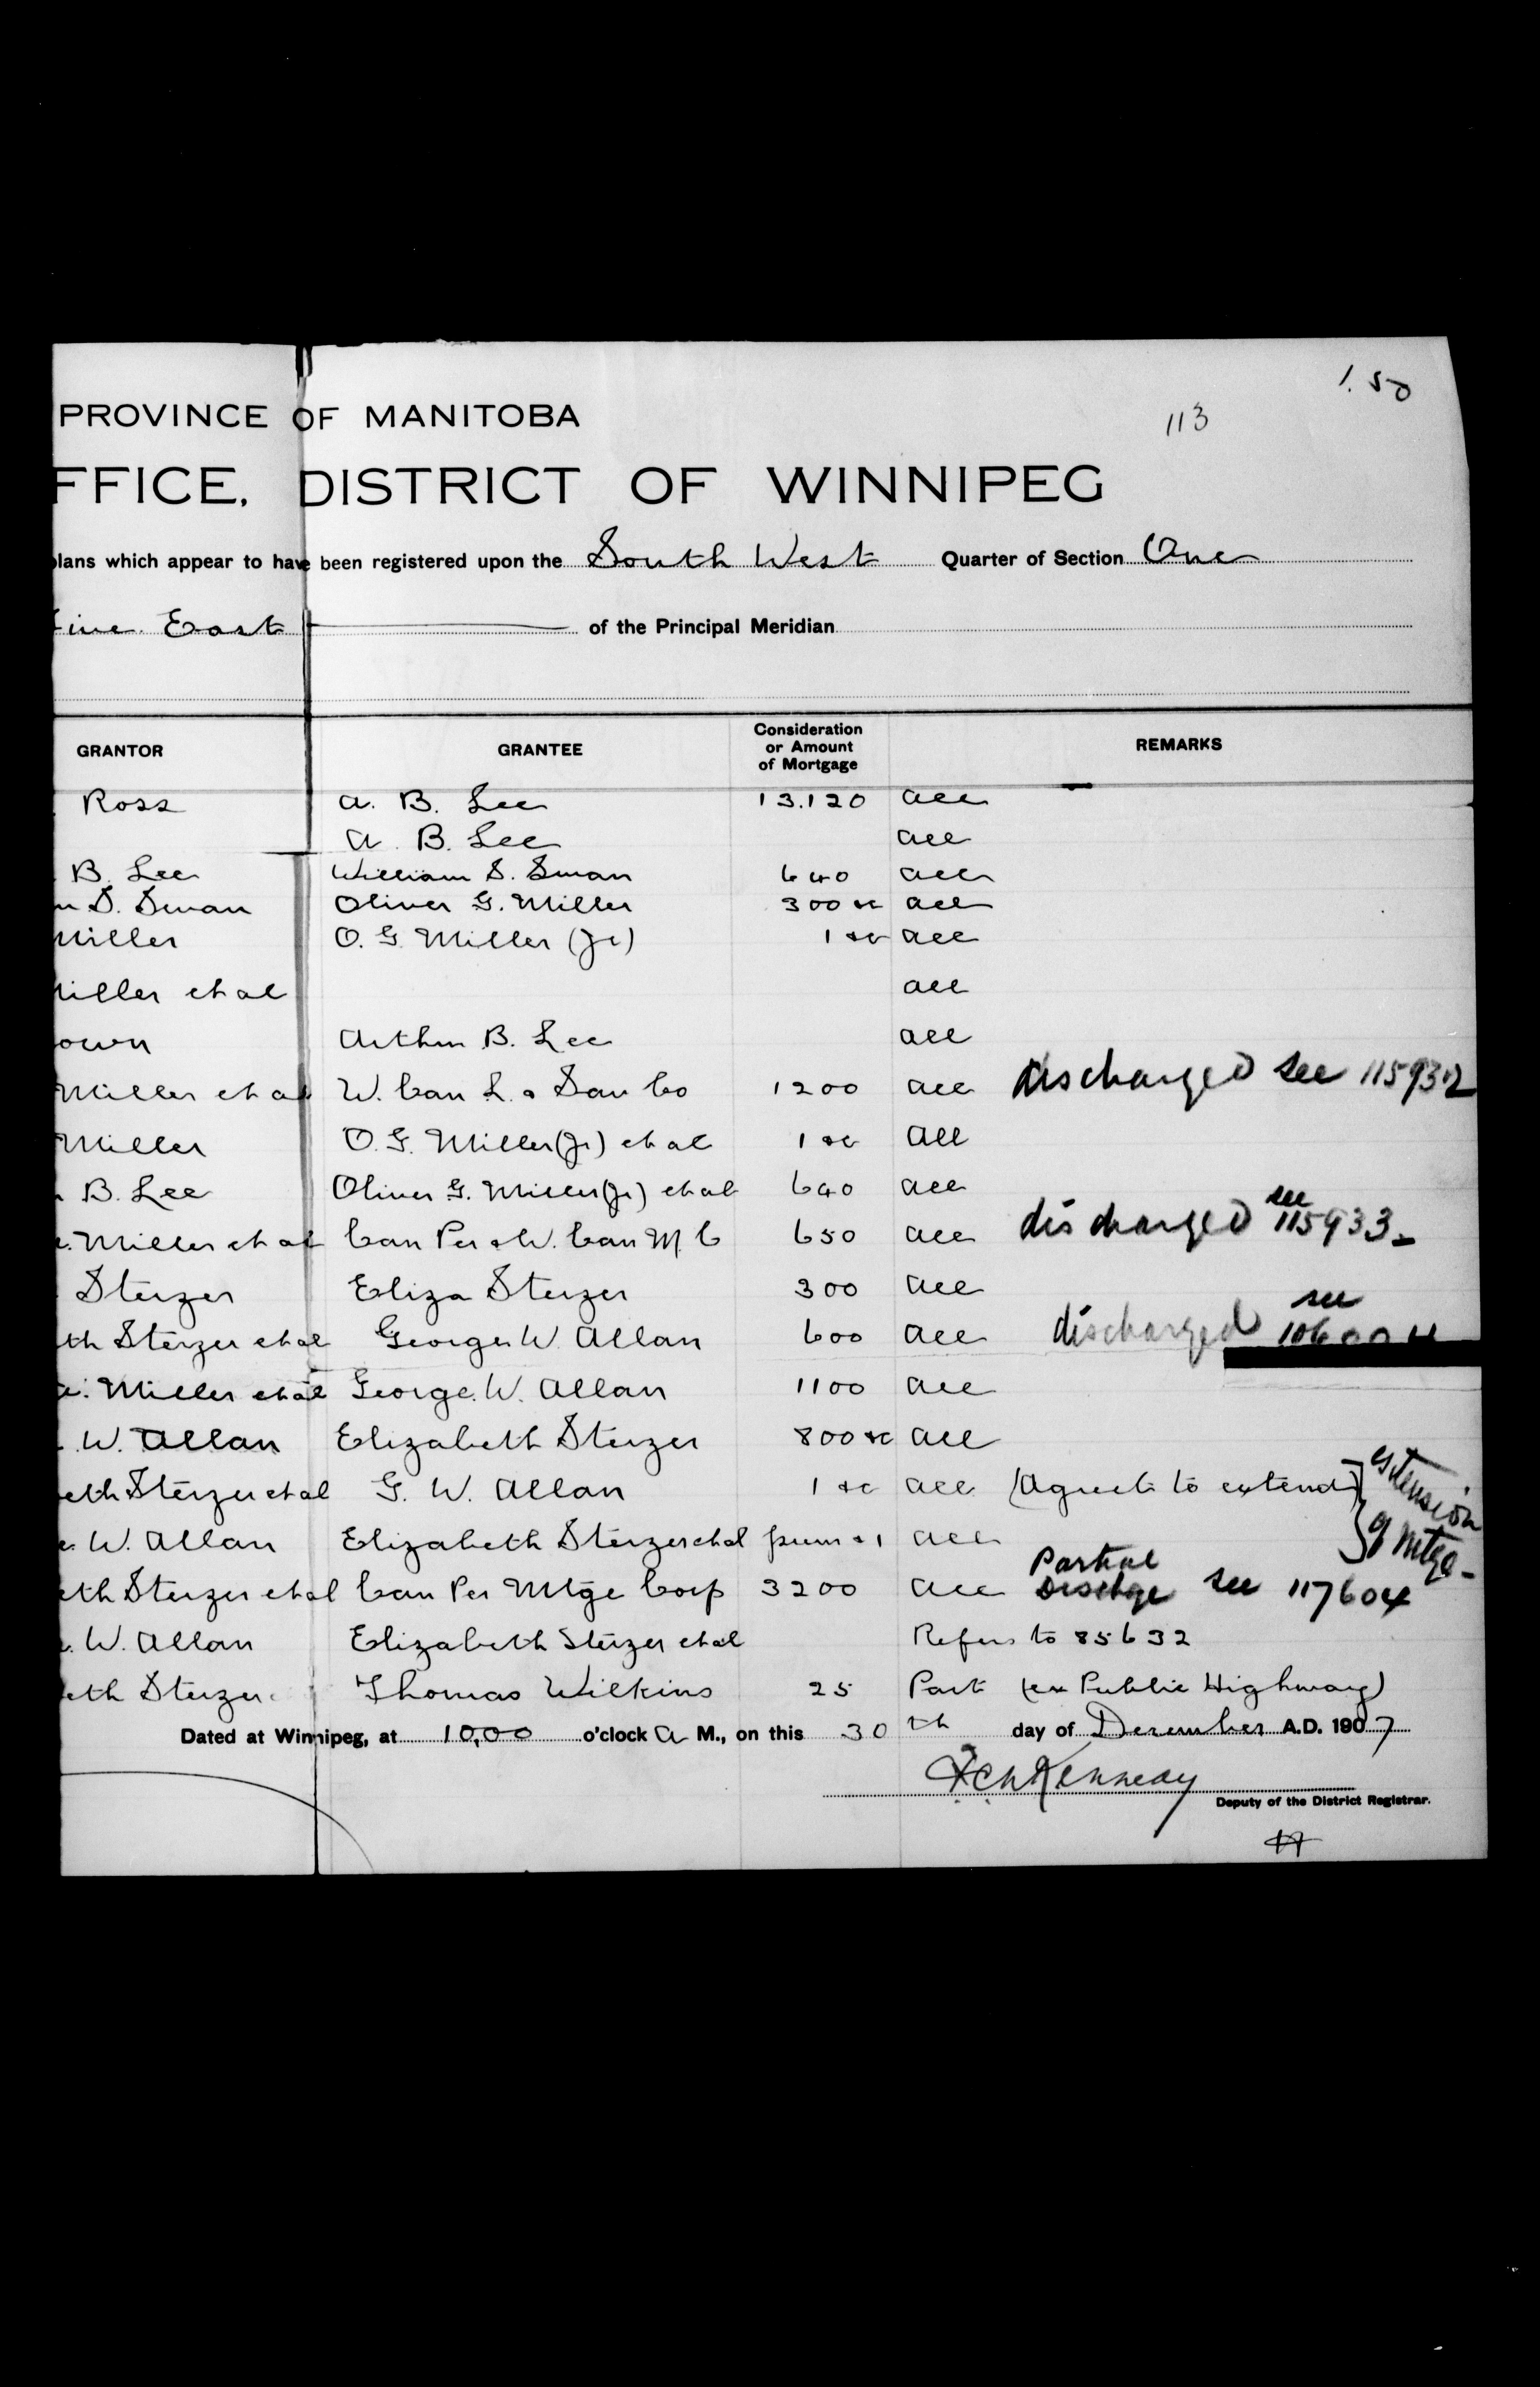 1.50
113
PROVINCE OF MANITOBA
FFICE, DISTRICT OF WINNIPEG
plans which appear to have been registered upon the South West Quarter of Section One
East of the Principal Meridian
GRANTOR GRANTEE Consideration or Amount of Mortgage REMARKS
Ross A. B. Lee 13.120 all
A. B. Lee all
B. Lee William S. Swan 640 all
S. Swan Oliver G. Miller 300 &c all
Miller O. G. Miller (Jr) 1 &c all
Miller et al all
own Arthur B. Lee all
Miller et al W. Can L. & Sav Co 1200 all discharged see 115932
Miller O. G. Miller (Jr) et al 1 &c all
B. Lee Oliver G. Miller (Jr) et al 640 all
Miller et al Can Per & W. Can M. C 650 all discharged see 115933
Sterzer Eliza Sterzer 300 all
th Sterzer et al George W Allan 600 all discharged see
Miller et al George. W. Allan 1100 all
W. Allan Elizabeth Sterzer 800 &c all
eth Sterzer et al G. W. Allan 1 &c all (Agreet to extend) extension of Mtge
W. Allan Elizabeth Sterzer et al prem & 1 all
eth Sterzer et al Can Per Mtge Corp 3200 all Partial Dischge see 117604
W. Allan Elizabeth Sterzer et al Refers to 85632
eth Sterzer Thomas Wilkins 25 Part (ex Public Highway)
Dated at Winnipeg, at 10,00 o'clock A M., on this 30th day of December A.D. 1907
Kennedy
Deputy of the District Registrar.